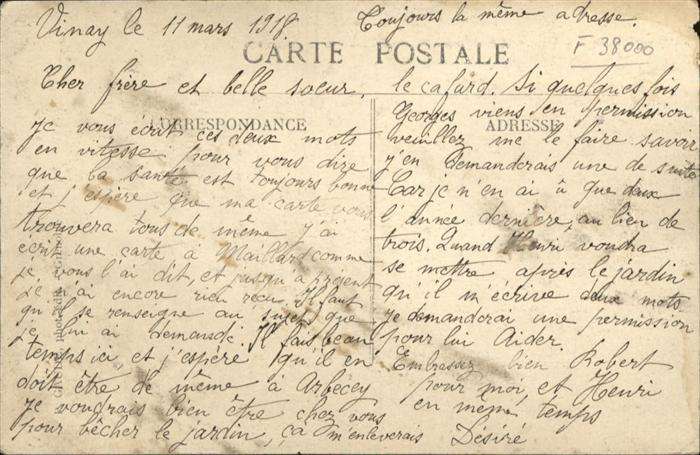 Vinay le 11 mars 1918 Toujours la même adresse.
F 38000
CARTE POSTALE
Cher frère et belle soeur,
CORRESPONDANCE
je vous écrit ces deux mots
en vitesse pour vous dire
que la santé est toujours bonne
et j'espère que ma carte vous
trouvera tous de même j'ai
écrit une carte à Maillard comme
je vous l'ai dit, et jusqu'à présent
je n'ai encore rien recu. Il faut
qu'il se renseigne au sujet que
je lui ai demandé. Il fais beau
temps ici, et j'espère qu'il en
doit être de même à Arbecey
je voudrais bien être chez vous
pour bêcher le jardin, ça m'enleverais
le cafard. Si quelques fois
Georges viens en permission
ADRESSE
veuillez me le faire savoir
j'en Demanderais une de suite
Car je n'en ai à que deux
l'année dernière, au lieu de
trois. Quand Henri voudra
se mettre après le jardin
qu'il m'écrive deux mots
je demanderai une permission
pour lui Aider.
Embrassez bien Robert
pour moi, et Henri
en même temps
Désiré